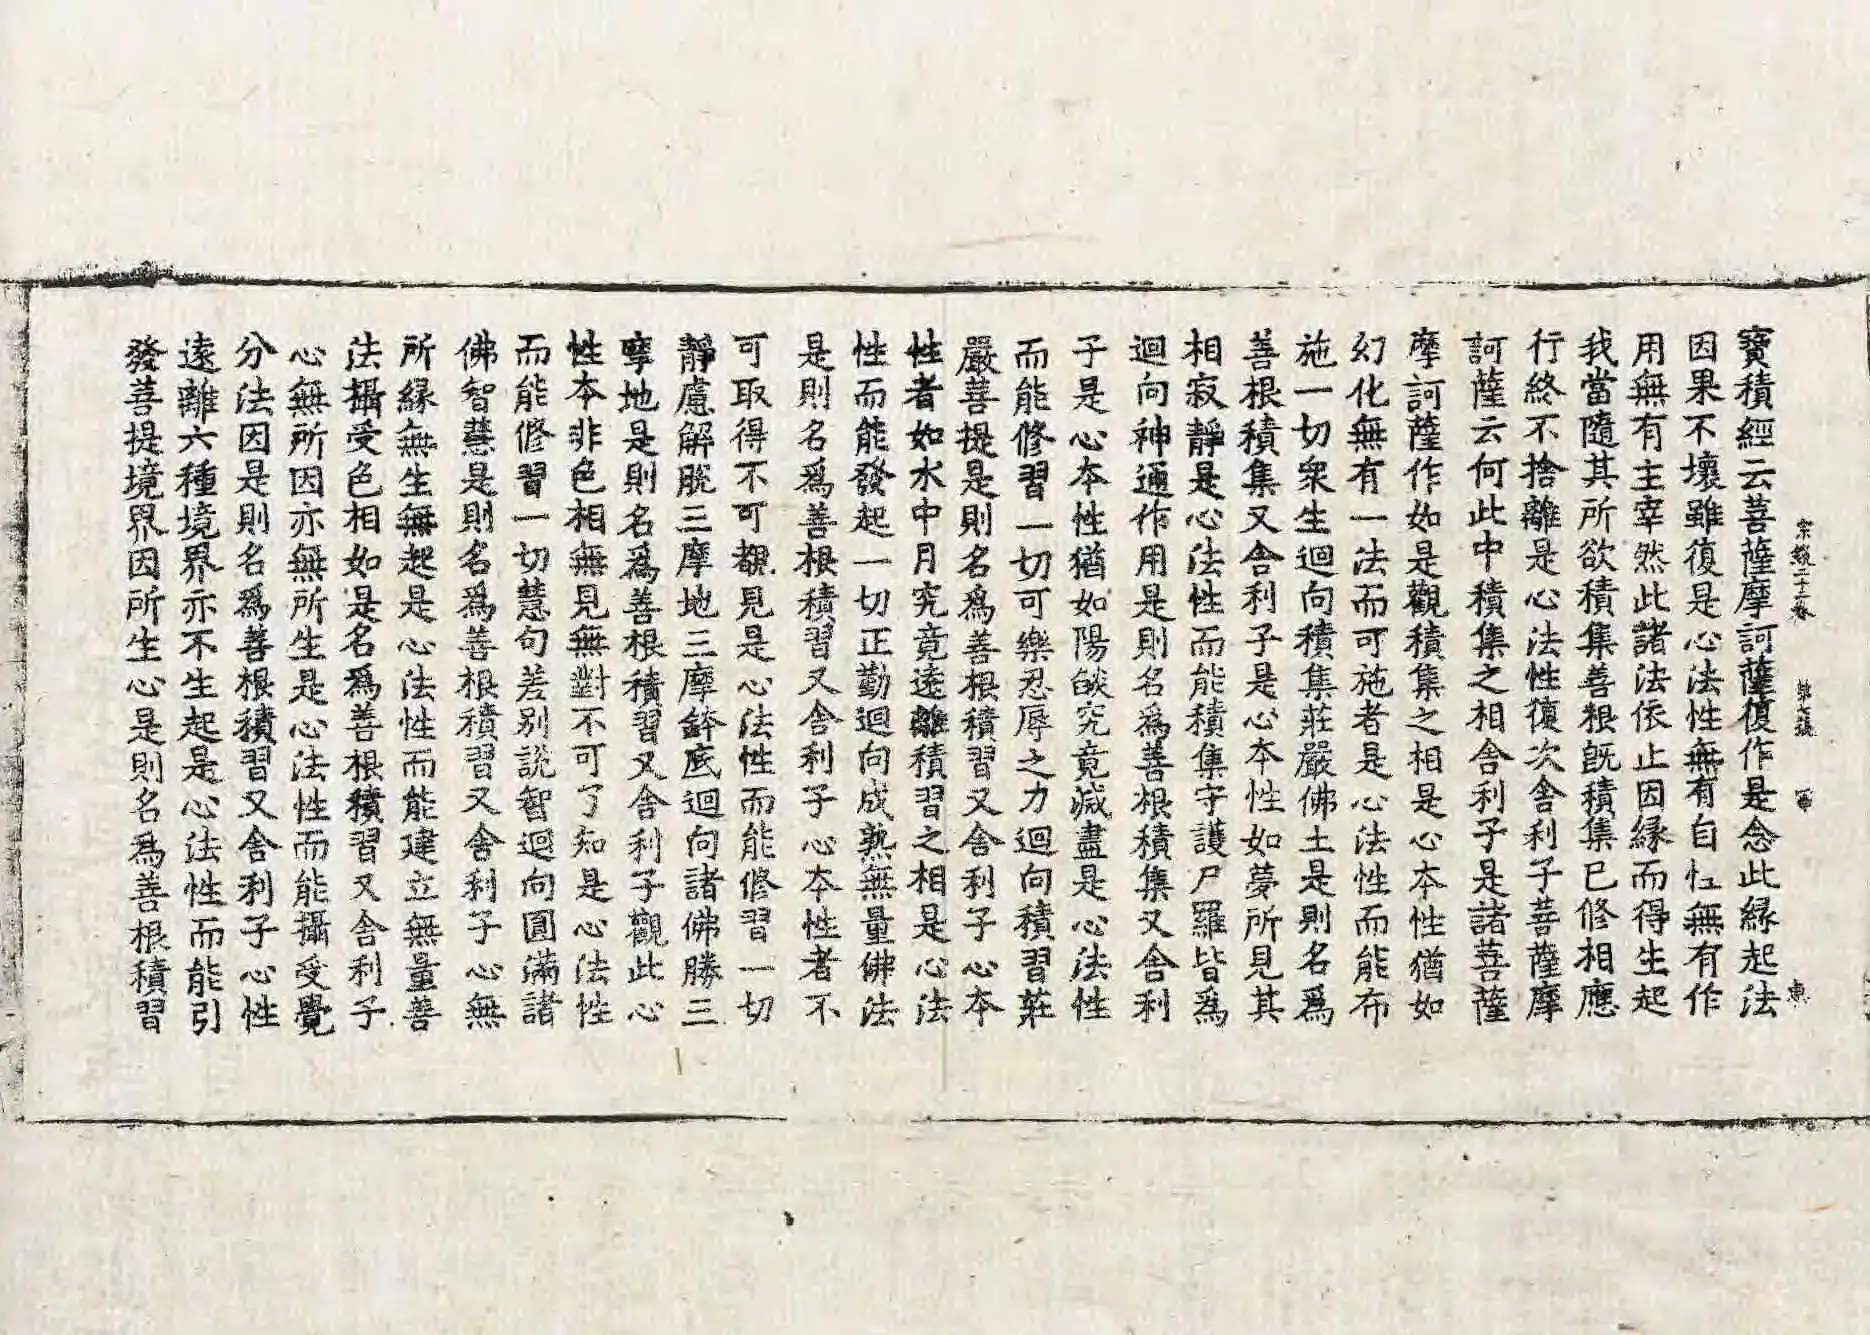 寶積經云菩薩摩訶薩復作是念此緣起法
因果不壞雖復是心法性無有自性無有作
用無有主宰然此諸法依止因緣而得生起
我當隨其所欲積集善根旣積集已修相應
行終不捨離是心法性復次舍利子菩薩摩
訶薩云何此中積集之相舍利子是諸菩薩
摩訶薩作如是觀積集之相是心本性猶如
幻化無有一法而可施者是心法性而能布
施一切衆生迴向積集莊嚴佛土是則名爲
善根積集又舍利子是心本性如夢所見其
相寂靜是心法性而能積集守護尸羅皆爲
迴向神通作用是則名爲善根積集又舍利
子是心本性猶如陽燄究竟滅盡是心法性
而能修習一切可樂忍辱之力迴向積習莊
嚴菩提是則名爲善根積習又舍利子心本
性者如水中月究竟遠離積習之相是心法
性而能發起一切正勤迴向成熟無量佛法
是則名爲善根積習又舍利子心本性者不
可取得不可覩見是心法性而能修習一切
靜慮解脫三摩地三摩鉢底迴向諸佛勝三
摩地是則名爲善根積習又舍利子觀此心
性本非色相無見無對不可了知是心法性
而能修習一切慧句差别說智迴向圓滿諸
佛智慧是則名爲善根積習又舍利子心無
所緣無生無起是心法性而能建立無量善
法攝受色相如是名爲善根積習又舍利子
心無所因亦無所生是心法性而能攝受覺
分法因是則名爲善根積習又舍利子心性
遠離六種境界亦不生起是心法性而能引
發菩提境界因所生心是則名爲善根積習
宗鏡二十二卷 第七張